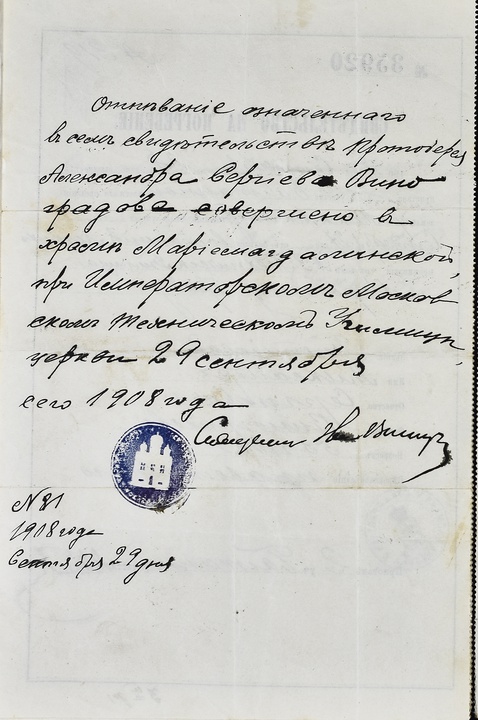 Отпѣваніе означеннаго
въ семъ свидѣтельствѣ протоіерея
Александра Сергіева Вино
градова совершено въ
храмѣ Маріемагдалинской,
при Императорскомъ Москов
скомъ Техническомъ Училищѣ,
церкви 29 сентября
сего 1908 года
Священникъ
N 81
1908 года
Сентября 29 дня